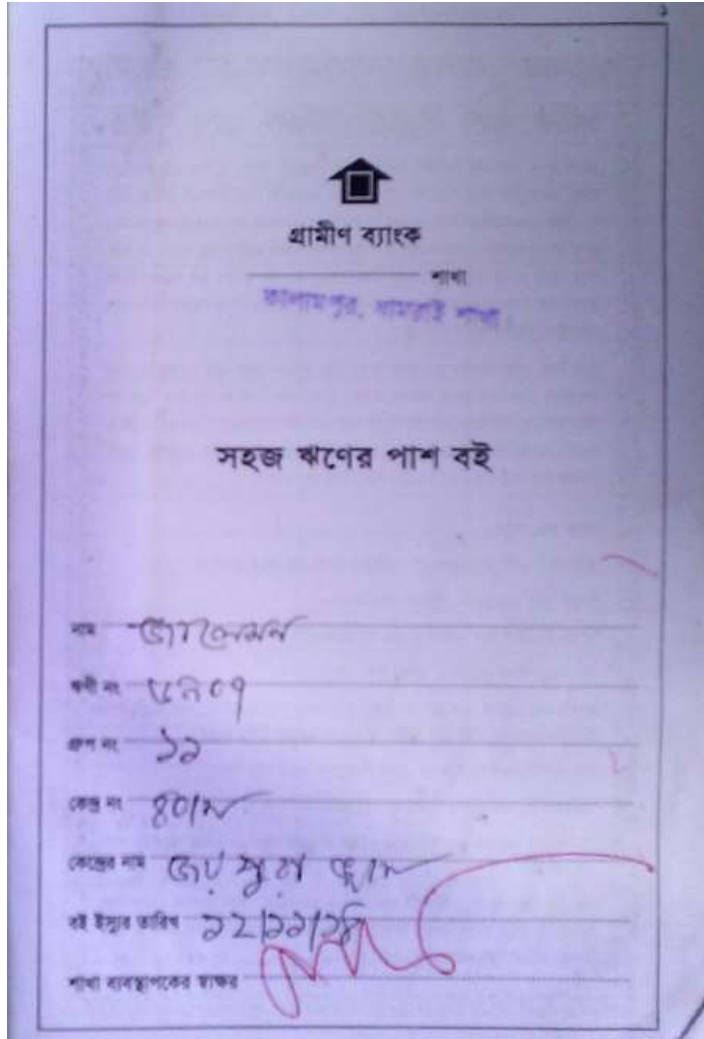 গ্রামীণ ব্যাংক
শাখা
কালামপুর, ধামরাই শাখা।
সহজ ঋণের পাশ বই
নাম
ঋণী নং
গ্রুপ নং ১১
কেন্দ্র নং ৪০/ম
কেন্দ্রের নাম জয়পুরা
বই ইস্যুর তারিখ ১২/১১/১৪
শাখা ব্যবস্থাপকের স্বাক্ষর